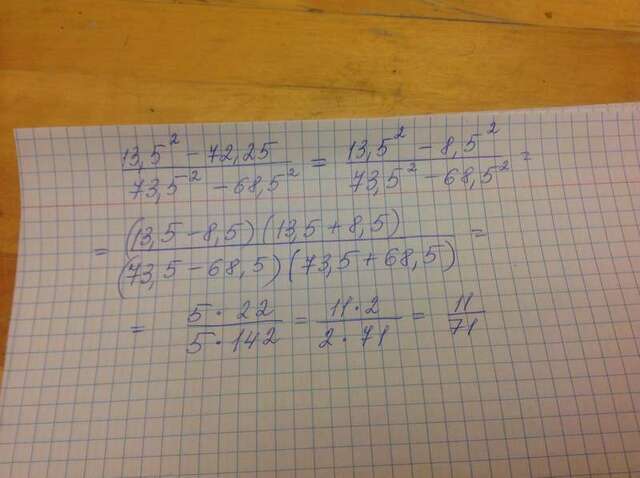 (13,5² - 72,25)/(73,5² - 68,5²) = (13,5² - 8,5²)/(73,5² - 68,5²) =
= ((13,5 - 8,5)(13,5 + 8,5))/((73,5 - 68,5)(73,5 + 68,5)) =
= (5 · 22)/(5 · 142) = (11 · 2)/(2 · 71) = 11/71